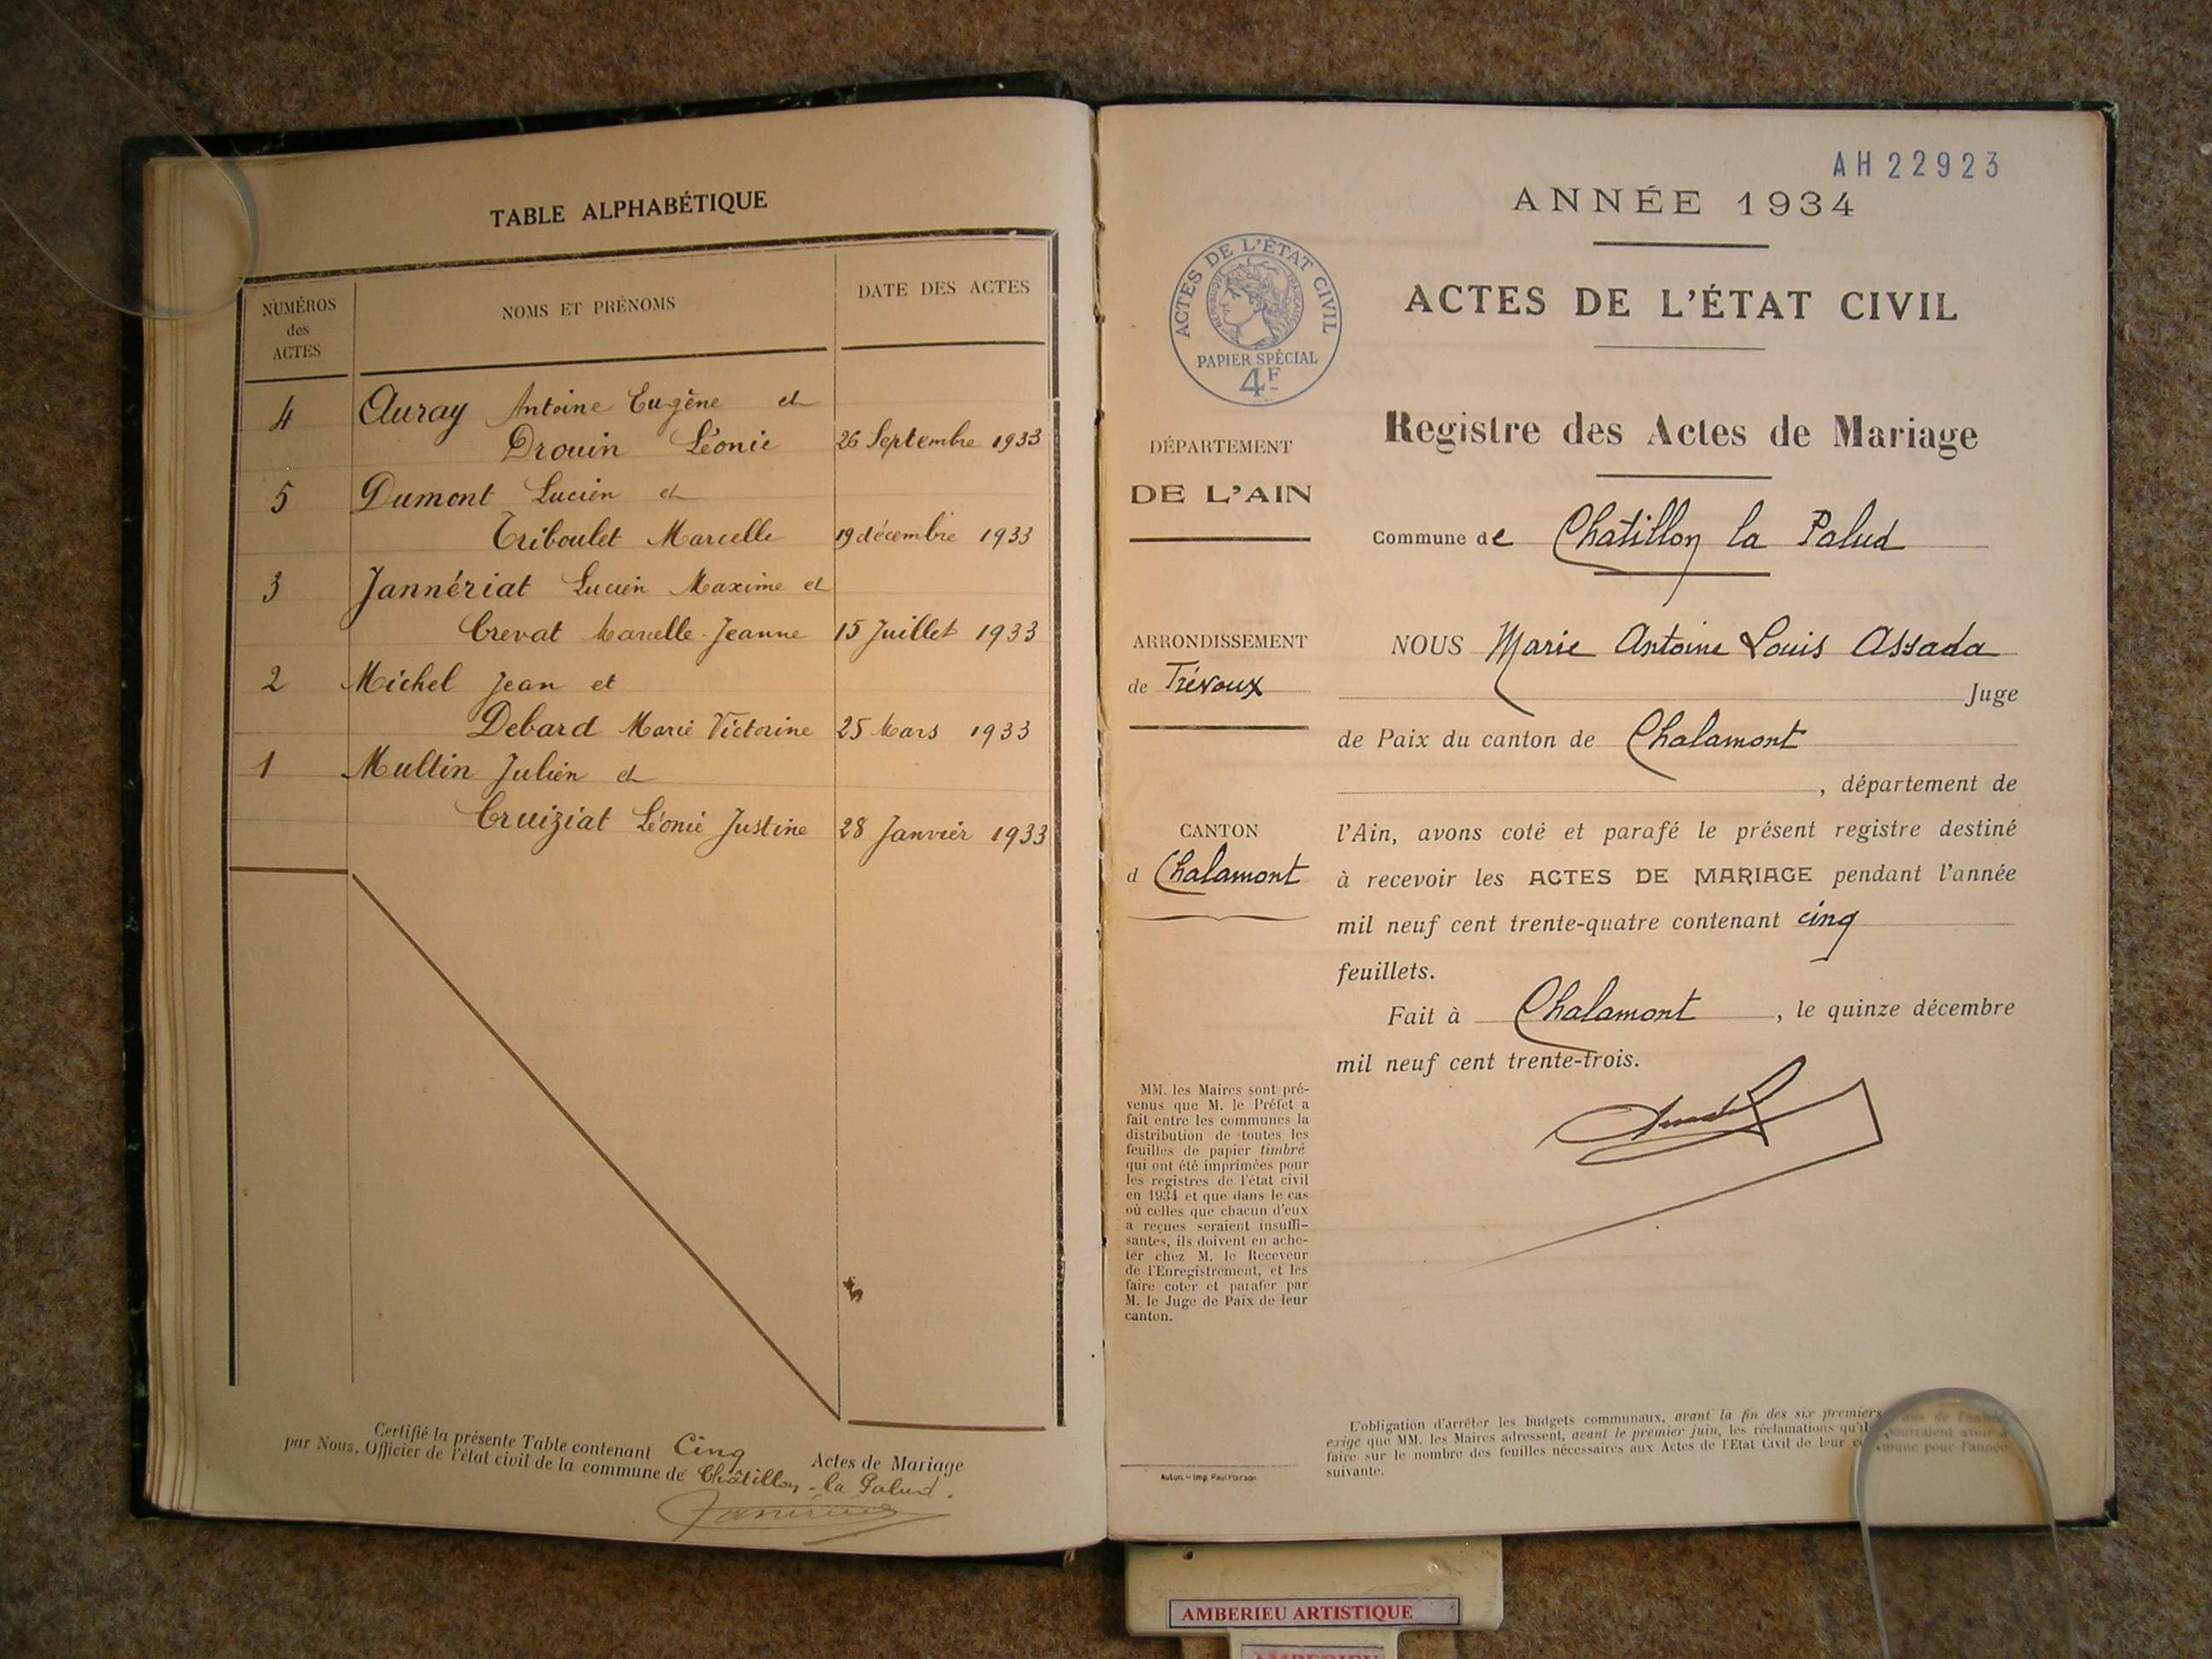 TABLE ALPHABÉTIQUE
NUMÉROS
des
ACTES
NOMS ET PRÉNOMS
DATE DES ACTES
4 Auray Antoine Eugène et
Drouin Léonie 26 Septembre 1933
5 Dumont Lucien et
Triboulet Marcelle 19 décembre 1933
3 Jannériat Lucien Maxime et
Crevat Marcelle-Jeanne 15 Juillet 1933
2 Michel Jean et
Debard Marie Victorine 25 Mars 1933
1 Multin Julien et
Cruiziat Léonie Justine 28 Janvier 1933
Certifié la présente Table contenant Cinq Actes de Mariage
par Nous, Officier de l'état civil de la commune de Châtillon-la Palud.
AH 22923
ANNÉE 1934
ACTES DE L'ÉTAT CIVIL
RÉPUBLIQUE FRANÇAISE
PAPIER SPÉCIAL
4F
ACTES DE L'ÉTAT CIVIL
Registre des Actes de Mariage
DÉPARTEMENT
DE L'AIN
Commune de Chatillon la Palud
ARRONDISSEMENT
de Trévoux
CANTON
d Chalamont
NOUS Marie Antoine Louis Assada
Juge
de Paix du canton de Chalamont
, département de
l'Ain, avons coté et parafé le présent registre destiné
à recevoir les ACTES DE MARIAGE pendant l'année
mil neuf cent trente-quatre contenant cinq
feuillets.
Fait à Chalamont, le quinze décembre
mil neuf cent trente-trois.
MM. les Maires sont pré-
venus que M. le Préfet a
fait entre les communes la
distribution de toutes les
feuilles de papier timbré
qui ont été imprimées pour
les registres de l'état civil
en 1934 et que dans le cas
où celles que chacun d'eux
a reçues seraient insuffi-
santes, ils doivent en ache-
ter chez M. le Receveur
de l'Enregistrement, et les
faire coter et parafer par
M. le Juge de Paix de leur
canton.
Autun. - Imp. Paul Pierson
L'obligation d'arrêter les budgets communaux, avant la fin des six premiers mois de l'année,
exige que MM. les Maires adressent, avant le premier juin, les réclamations qu'ils pourraient avoir à
faire sur le nombre des feuilles nécessaires aux Actes de l'Etat Civil de leur commune pour l'année
suivante.
AMBERIEU ARTISTIQUE
AMBERIEU